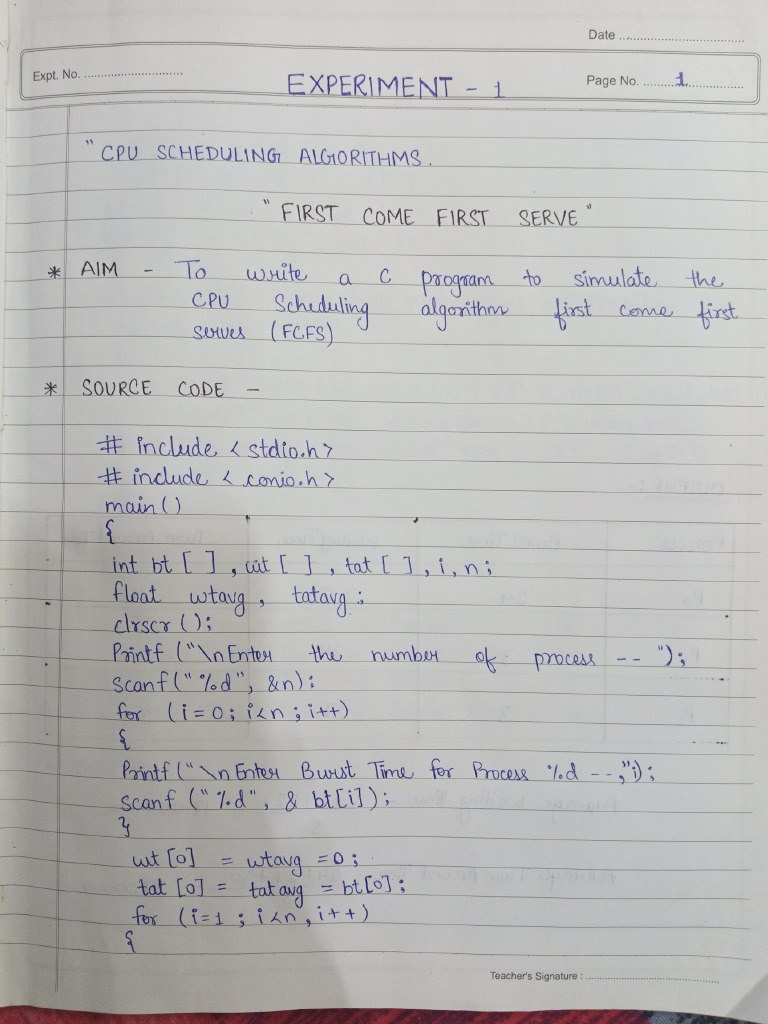 Date
Expt. No.
EXPERIMENT - 1
Page No. 1
"CPU SCHEDULING ALGORITHMS.
"FIRST COME FIRST SERVE"
* AIM - To write a C program to simulate the
CPU Scheduling algorithm first come first
serves (FCFS)
* SOURCE CODE -
# include < stdio.h>
# include < conio.h>
main()
{
int bt [ ], wt [ ], tat [ ], i, n;
float wtavg, tatavg;
clrscr ();
Printf ("\nEnter the number of process -- ");
scanf("%d", &n);
for (i=0; i<n; i++)
{
Printf ("\nEnter Burst Time for Process %d --,"i);
scanf ("%d", & bt[i]);
}
wt [0] = wtavg =0;
tat [0] = tatavg = bt[0];
for (i=1; i<n, i++)
{
Teacher's Signature :